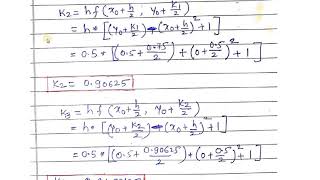 K₂ = hf(x₀+h/2, y₀+k₁/2)
= h*[(y₀+k₁/2)-(x₀+h/2)²+1]
= 0.5*[(0.5+0.75/2)+(0+0.5/2)²+1]
K₂ = 0.90625
K₃ = hf(x₀+h/2, y₀+K₂/2)
= h*[(y₀+K₂/2)-(x₀+h/2)²+1]
= 0.5*[(0.5+0.90625/2)+(0+0.5/2)²+1]